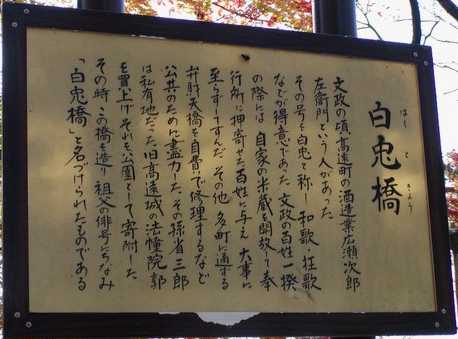 白兎橋
はくときょう
文政の頃高遠町の酒造業広瀬次郎
左衛門という人があった
その号を白兎と称し和歌、狂歌
などが得意であった 文政の百姓一揆
の際には自家の米蔵を開放し奉
行所に押寄せた百姓に与え大事に
至らずしてすんだ その他多町に通ずる
弁財天橋を自費で修理するなど
公共のために盡力した その孫省三郎
は私有地だった旧高遠城の法幢院郭
を買上げそれを公園として寄附した
その時この橋を造り祖父の俳号にちなみ
「白兎橋」と名づけられたものである